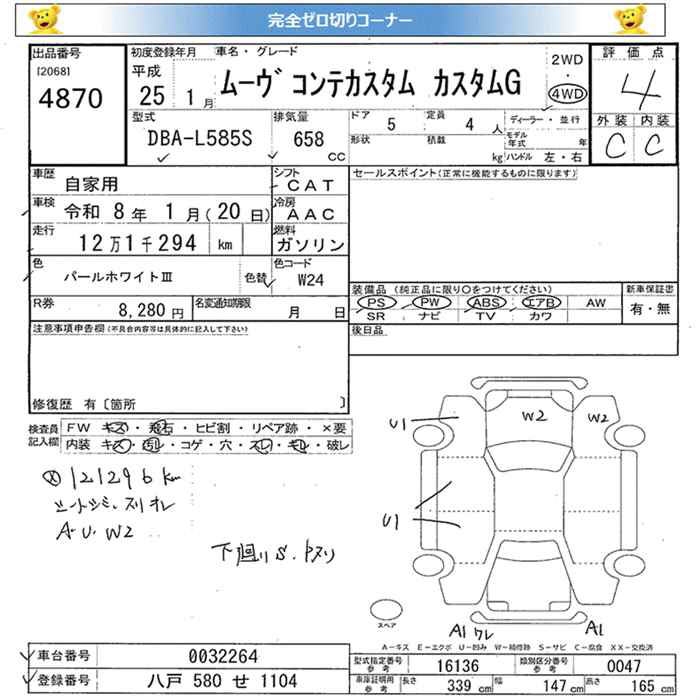 完全ゼロ切りコーナー
出品番号 初度登録年月 車名・グレード 2WD 評価点
[2068] 平成 ・
4870 25 1月 ムーヴ コンテカスタム カスタムG 4WD 4
型式 排気量 ドア 5 定員 4人 ディーラー・並行 外装 内装
DBA-L585S 658 CC 形状 積載 kg モデル年式 年 C C
ハンドル 左・右
車歴 自家用 シフト CAT セールスポイント(正常に機能するものに限ります)
車検 令和 8年 1月(20日) 冷房 AAC
走行 12万1千294 km 燃料 ガソリン
色 パールホワイトⅢ 色替 色コード W24
装備品 (純正品に限り○をつけてください) 新車保証書
R券 8,280円 名変通知期限 月 日 PS PW ABS エアB AW 有・無
SR ナビ TV カワ
注意事項申告欄(不具合内容等は具体的に記入して下さい) 後日品
修復歴 有〔箇所 〕
検査員記入欄 FW キズ・飛石・ヒビ割・リペア跡・×要
内装 キズ・汚れ・コゲ・穴・スレ・キレ・破レ
U1 W2 W2
U1
121296km
シートシミ、スリ
A・U・W2
下廻りS.
スペア
A1 ワレ A1
A-キズ E-エクボ U-凹み W-補修跡 S-サビ C-腐食 XX-交換済
車台番号 0032264 型式指定番号 参考 16136 類別区分番号 参考 0047
登録番号 八戸 580 せ 1104 車庫証明用 参考 長さ 339cm 幅 147cm 高さ 165cm